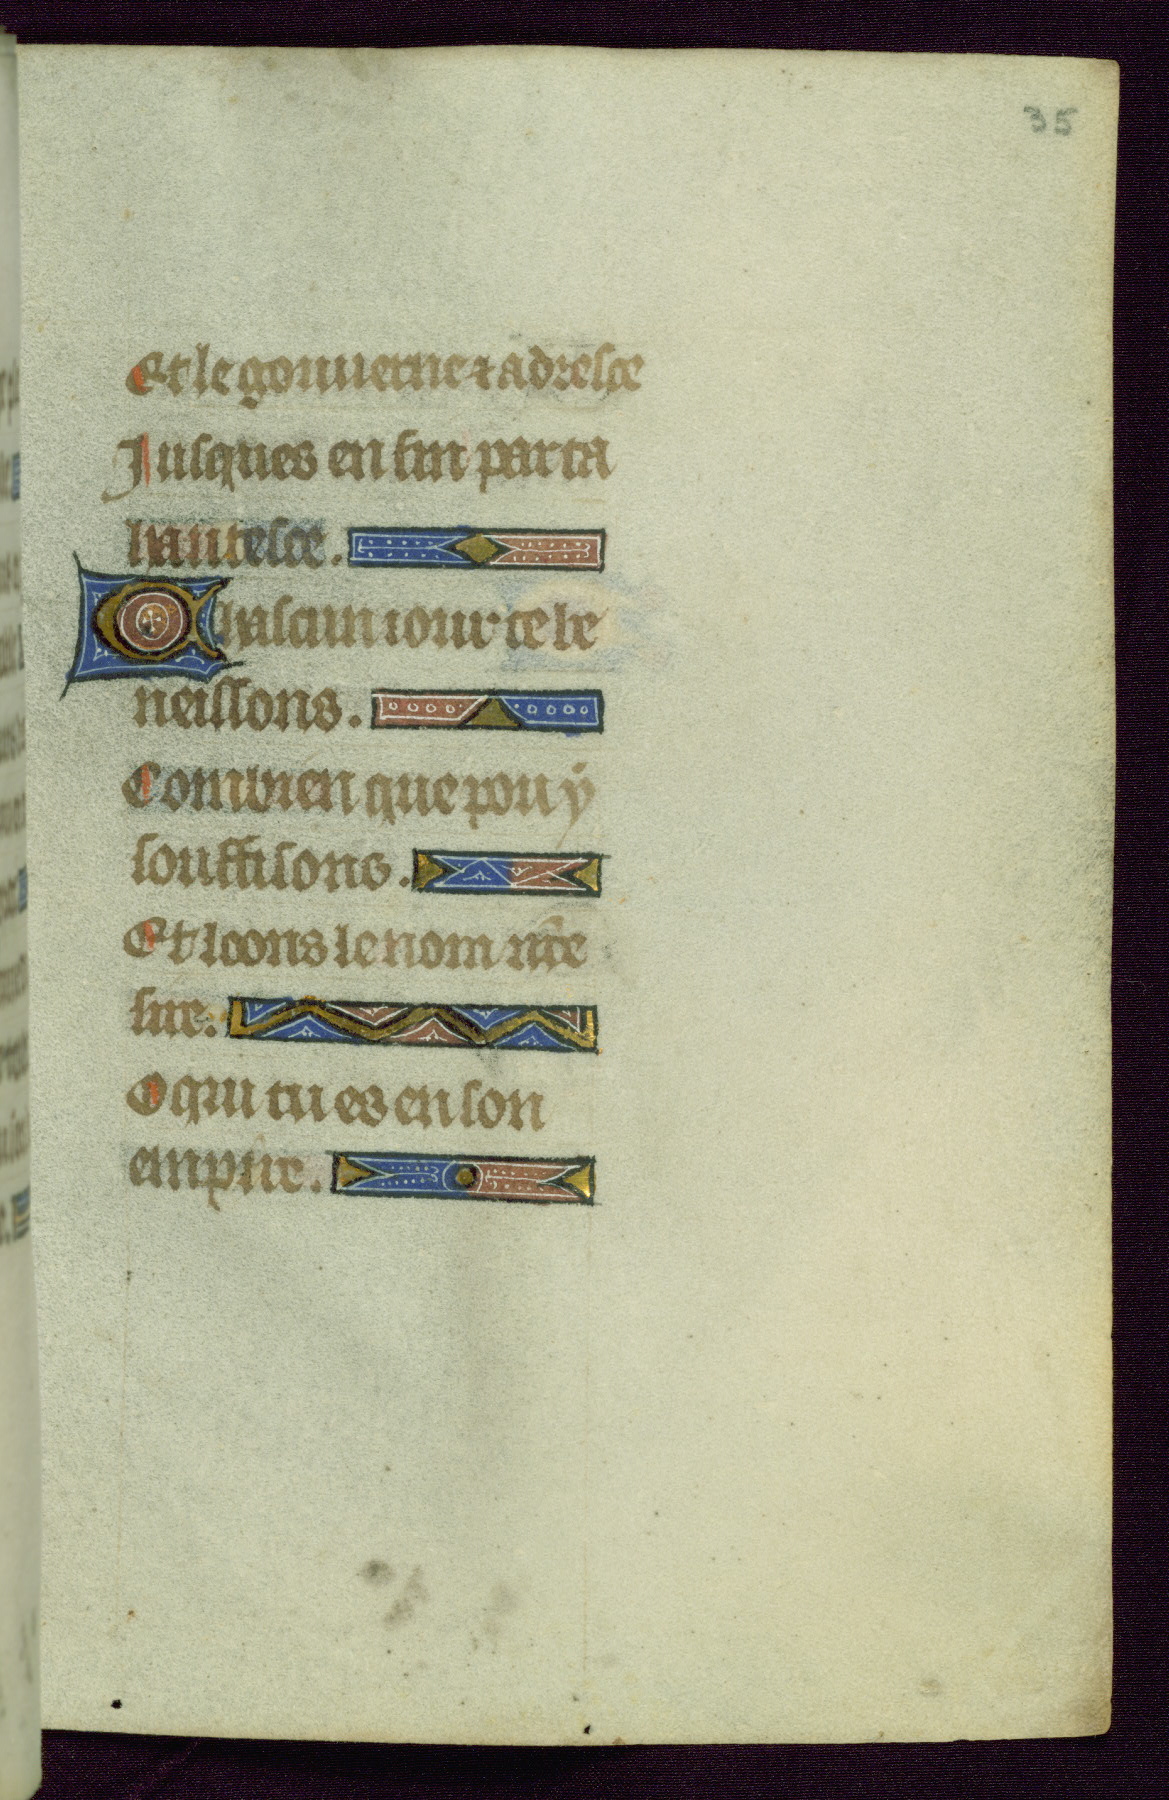 35
Et le gouuerne ⁊ adresce
Jusques en fin par ta
hautesce.
Chascun iour te be
neissons.
Combien que pou y
souffisons.
Et loons le nom nr̃e
sire.
O qui tu es en son
empire.